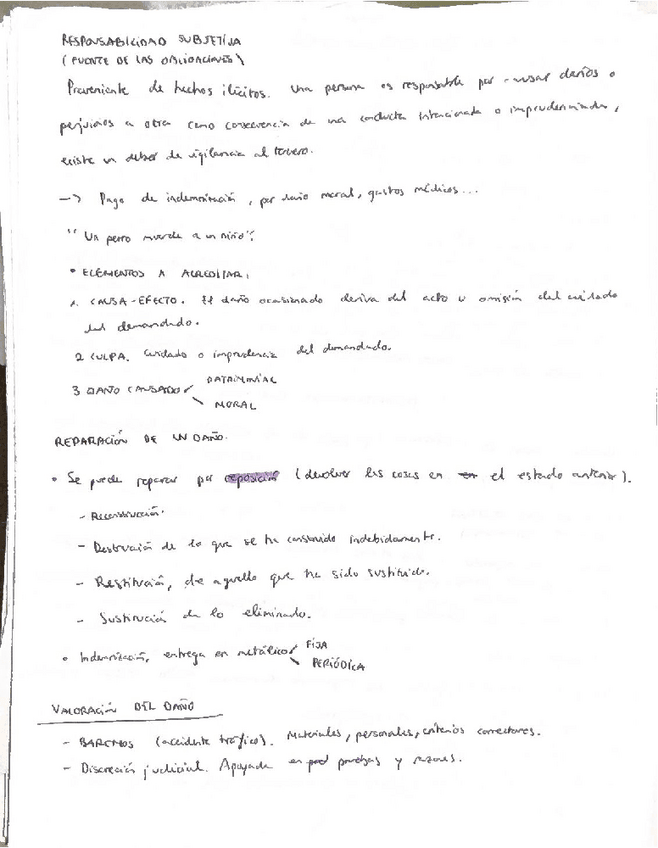 RESPONSABILIDAD SUBJETIVA
(FUENTE DE LAS OBLIGACIONES)
Proveniente de hechos ilícitos. Una persona es responsable por causar daños o
perjuicios a otra como consecuencia de una conducta intencionada o imprudencia,
existe un deber de vigilancia al tercero.
-> Pago de indemnización, por daño moral, gastos médicos...
"Un perro muerde a un niño".
• ELEMENTOS A ACREDITAR:
1. CAUSA-EFECTO. El daño ocasionado deriva del acto u omisión del cuidado
del demandado.
2 CULPA. Cuidado o imprudencia del demandado.
3 DAÑO CAUSADO PATRIMONIAL
MORAL
REPARACIÓN DE UN DAÑO.
• Se puede reparar por reposición (devolver las cosas en el estado anterior).
- Reconstrucción.
- Destrucción de lo que se ha construido indebidamente.
- Restitución, de aquello que ha sido sustituido.
- Sustitución de lo eliminado.
• Indemnización, entrega en metálico FIJA
PERIÓDICA
VALORACIÓN DEL DAÑO
- BAREMOS (accidente tráfico). Materiales, personales, criterios correctores.
- Discreción judicial. Apoyada en pruebas y razones.